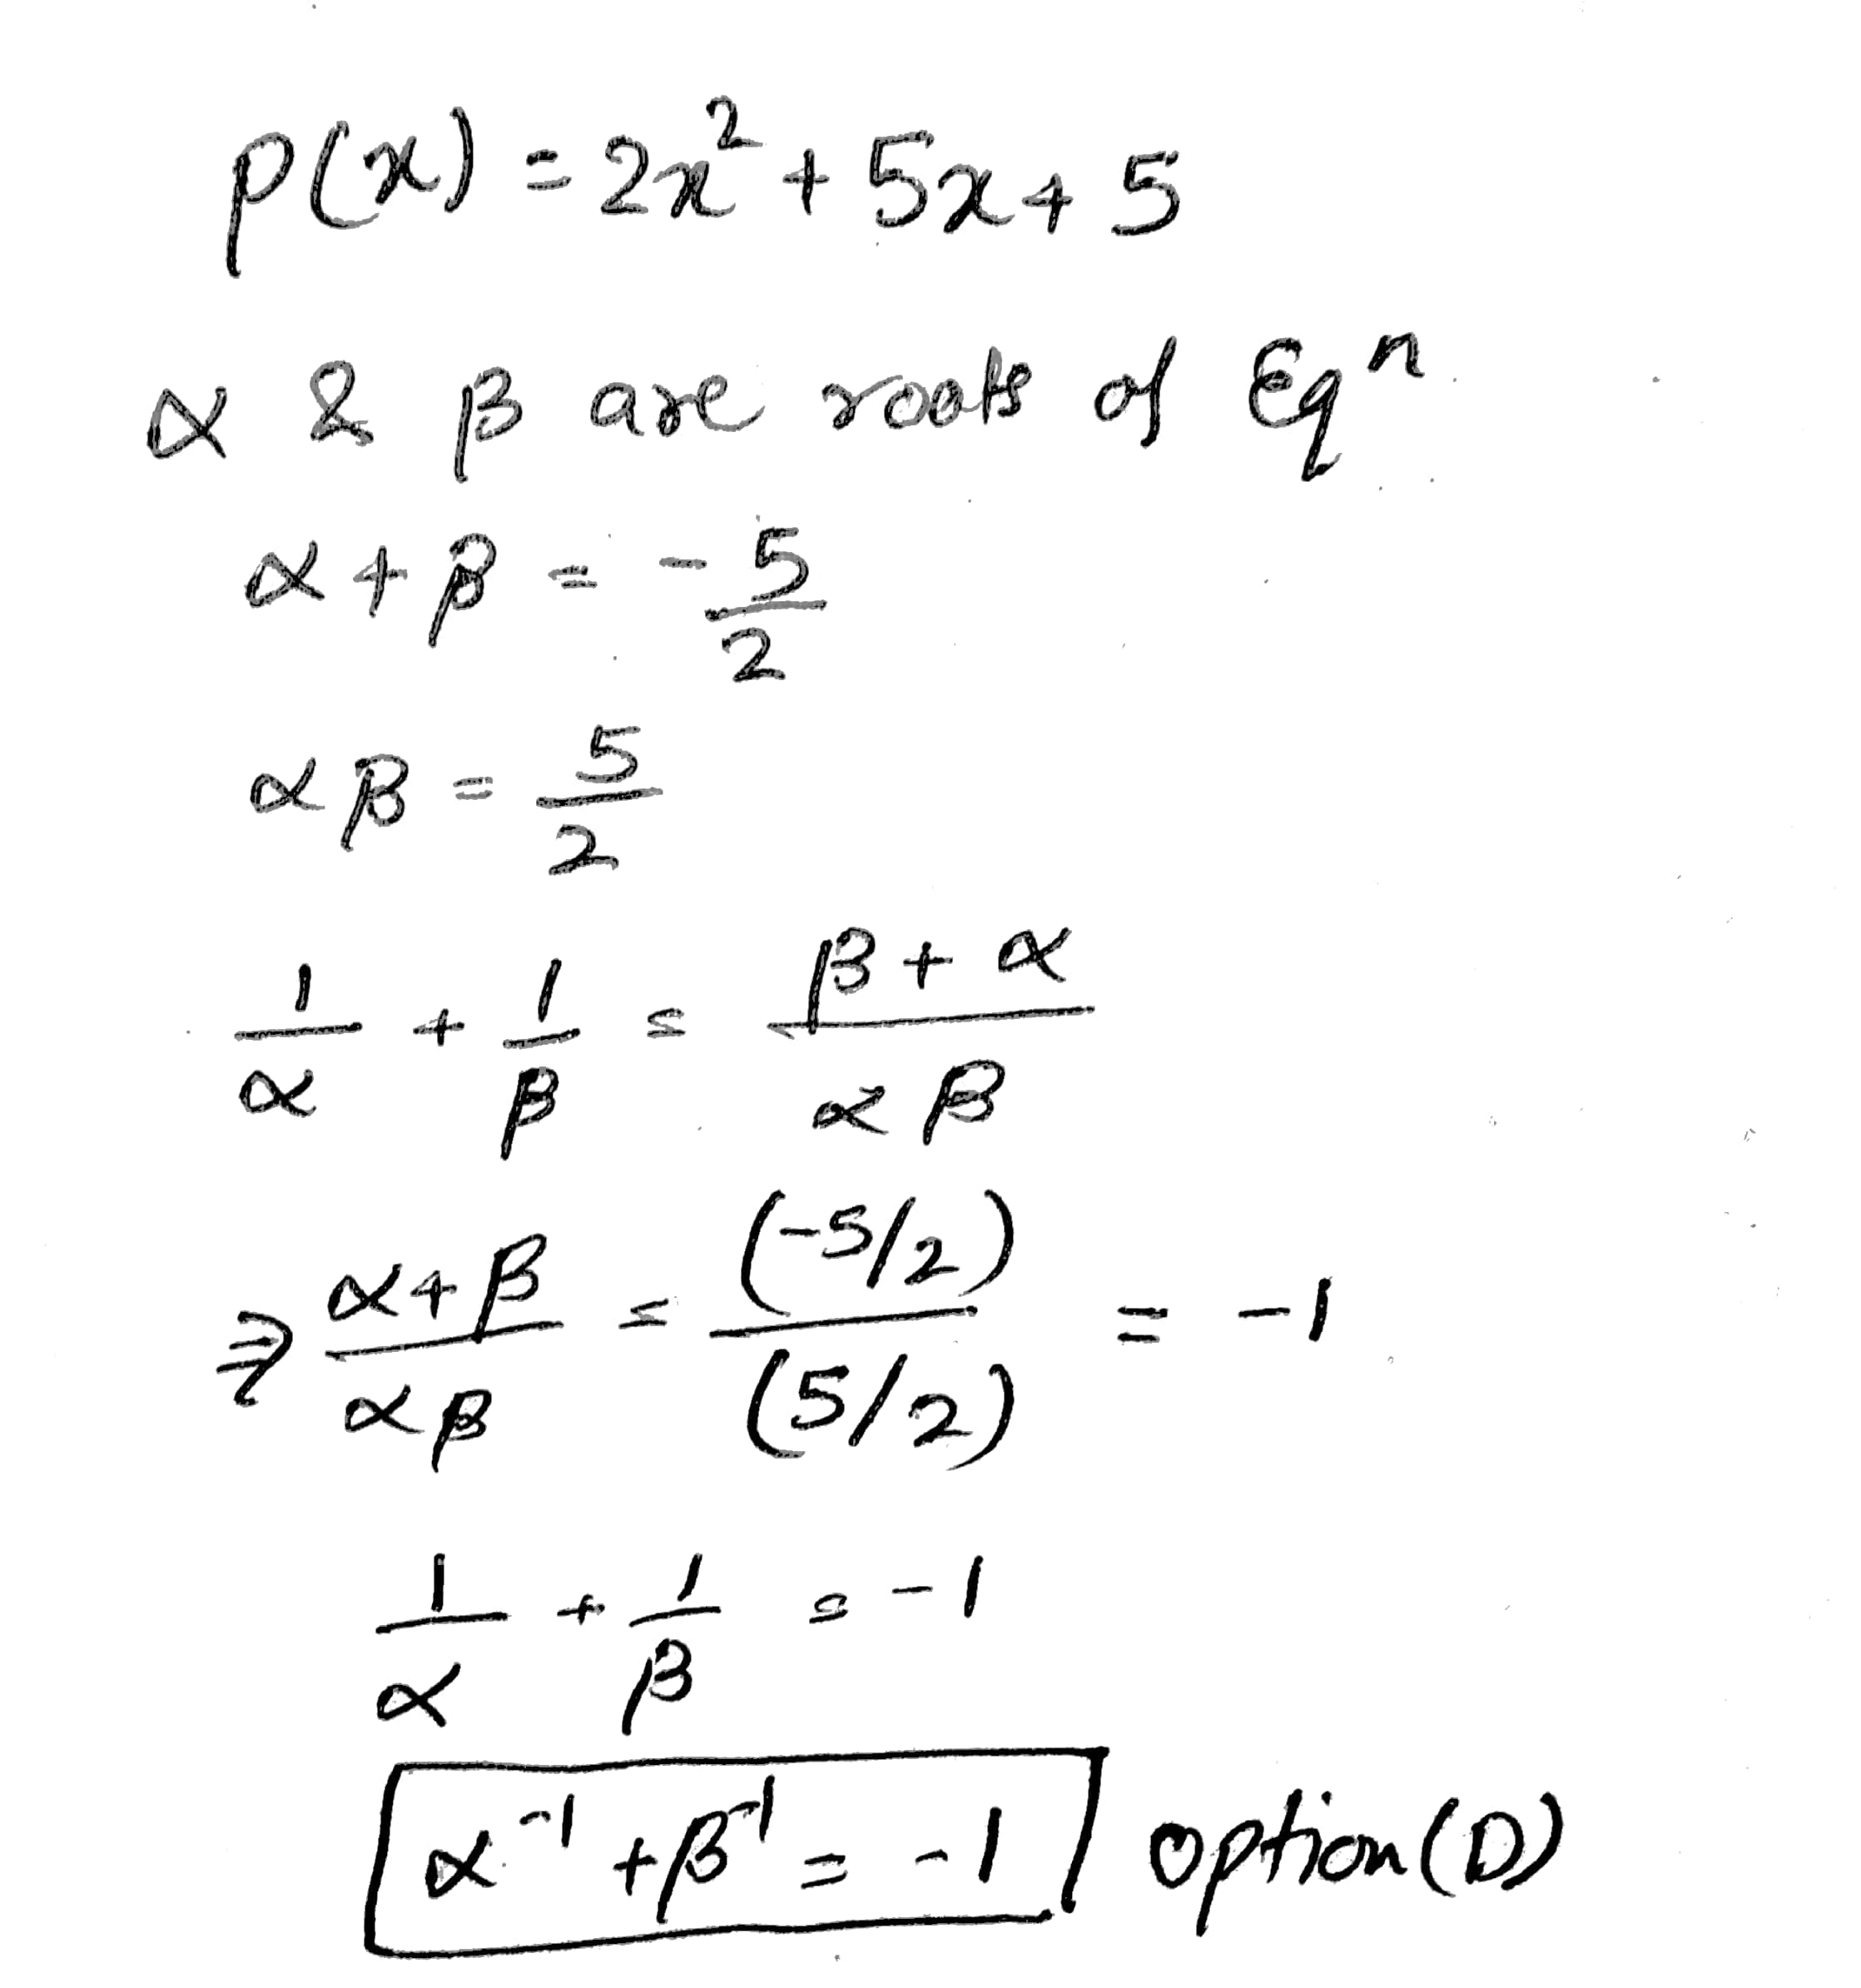 p(x) = 2x² + 5x + 5
α & β are roots of Eqⁿ
α + β = -5/2
αβ = 5/2
1/α + 1/β = (β + α)/(αβ)
⇒ (α + β)/(αβ) = (-5/2)/(5/2) = -1
1/α + 1/β = -1
α⁻¹ + β⁻¹ = -1 option (D)